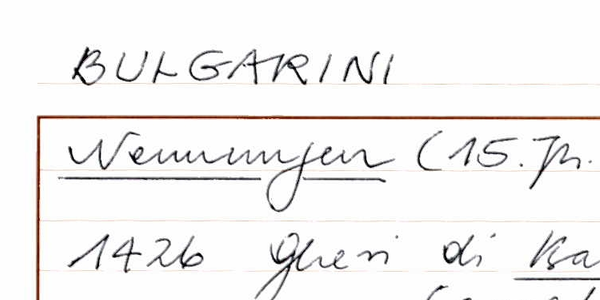 BULGARINI
Nennungen (15. Jh.
1426 Gheri di Ba